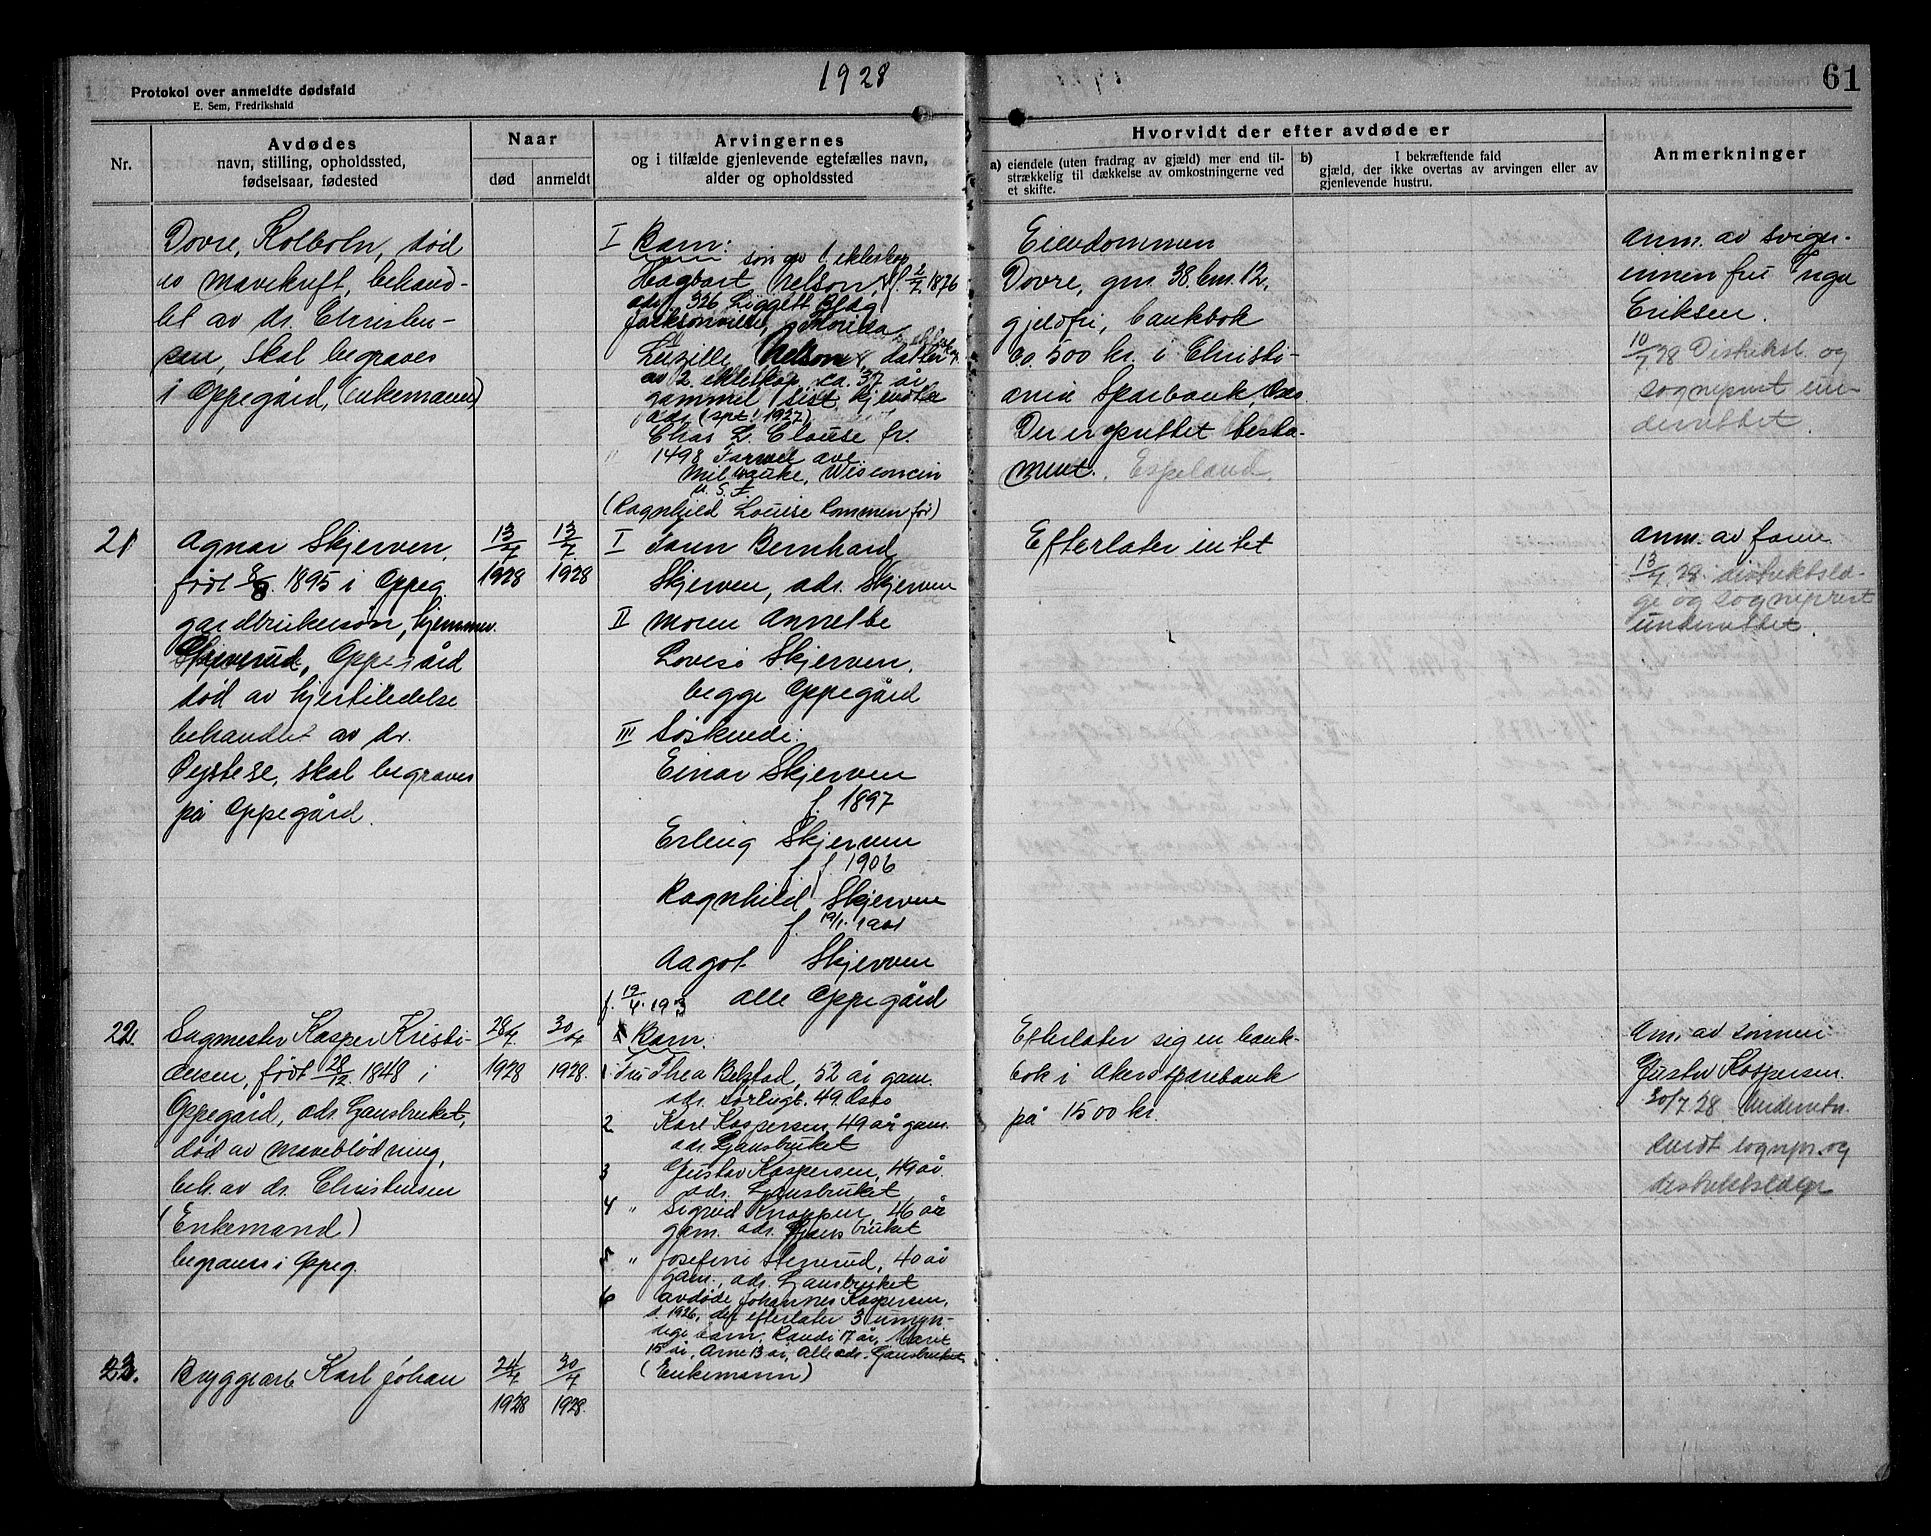 1928
61
Protokol over anmeldte dødsfald
E. Sem, Fredrikshald
Nr.
Avdødes
navn, stilling, opholdssted,
fødselsaar, fødested
Naar
død
anmeldt
Arvingernes
og i tilfælde gjenlevende egtefælles navn,
alder og opholdssted
Hvorvidt der efter avdøde er
a) eiendele (uten fradrag av gjæld) mer end til-
strækkelig til dækkelse av omkostningerne ved
et skifte.
b) I bekræftende fald
gjæld, der ikke overtas av arvingen eller av
gjenlevende hustru.
Anmerkninger
Dovre, Kolbotn, død
av mavekreft, behand-
let av dr. Christen-
sen, skal begraves
i Oppegård, (enkemann)
I Barn:
søn av 1 ekteskap
Hagbart Nelson, f. 2/2 1876
adr. 326 Liggett Bldg
Jacksonville, Florida
Luzille Nelson, datter
av 2. ekteskap, ca. 37 år
gammel (sist kjendte
adr. (spt. 1927)
Chas L. Clouse fr.
1498 Farwell ave.
Milwauke, Wisconcin
U. S. A.
(Ragnhild Louise Rommen før)
Eiendommen
Dovre, gnr. 38 bnr. 12,
gjeldfri, bankbok
ca. 500 kr. i Christi-
ania Sparbank,
Der er oprettet testa-
ment. Espeland.
Anm. av sviger-
innen fru Inga
Eriksen.
10/7 28 Distriktsl. og
sogneprest un-
derrettet.
21
Agnar Skjerven,
født 8/8 1895 i Oppeg.
gardbrukersøn, hjemmev.
Oppegård
død av hjertelidelse
behandlet av dr.
Øystese, skal begraves
på Oppegård.
13/7
1928
13/7
1928
I Faren Bernhard
Skjerven, adr. Skjerven
II Moren Annette
Lovise Skjerven,
begge Oppegård
III Søskende:
Einar Skjerven
f. 1897
Erling Skjerven
f. 1906
Ragnhild Skjerven
f. 19/1. 1901
Aagot Skjerven
f. 19/4. 193 alle Oppegård
Efterlater intet
Anm. av faren
13/7 28. distriktslæ-
ge og sogneprest
underrettet.
22.
Sagmester Kasper Kristi-
ansen, født 28/12. 1848 i
Oppegård, adr. Gansbruket,
død av maveblødning,
beh. av dr. Christensen
(Enkemand)
begraves i Oppeg.
28/7
1928
30/7
1928.
I Barn:
1 Fru Thea Belstad, 52 år gam.
adr. Sorlugt. 49. Oslo
2 Karl Kaspersen, 49 år gam.
adr. Gansbruket
3 Gustav Kaspersen, 49 år
adr. Gansbruket
4 " Sigrid Knappen, 46 år
gam. adr. Gjansbruket
5 " Josefine Stenrud, 40 år
gam., adr. Gansbruket
6 Avdøde Johannes Kaspersen,
d. 1926, der efterlater 3 umyn-
dige barn, Randi 17 år, Marit
15 år, Arne 13 år, Alle adr. Gansbruket
Efterlater sig en bank-
bok i Aker Sparebank
på 1500 kr.
Anm. av sønnen
Gustav Kaspersen.
30/7 28 Underretn.
sendt sognepr. og
distriktslæge
23.
Bryggearb Karl Johan
24/7
1928
30/7
1928.
(Enkemann)